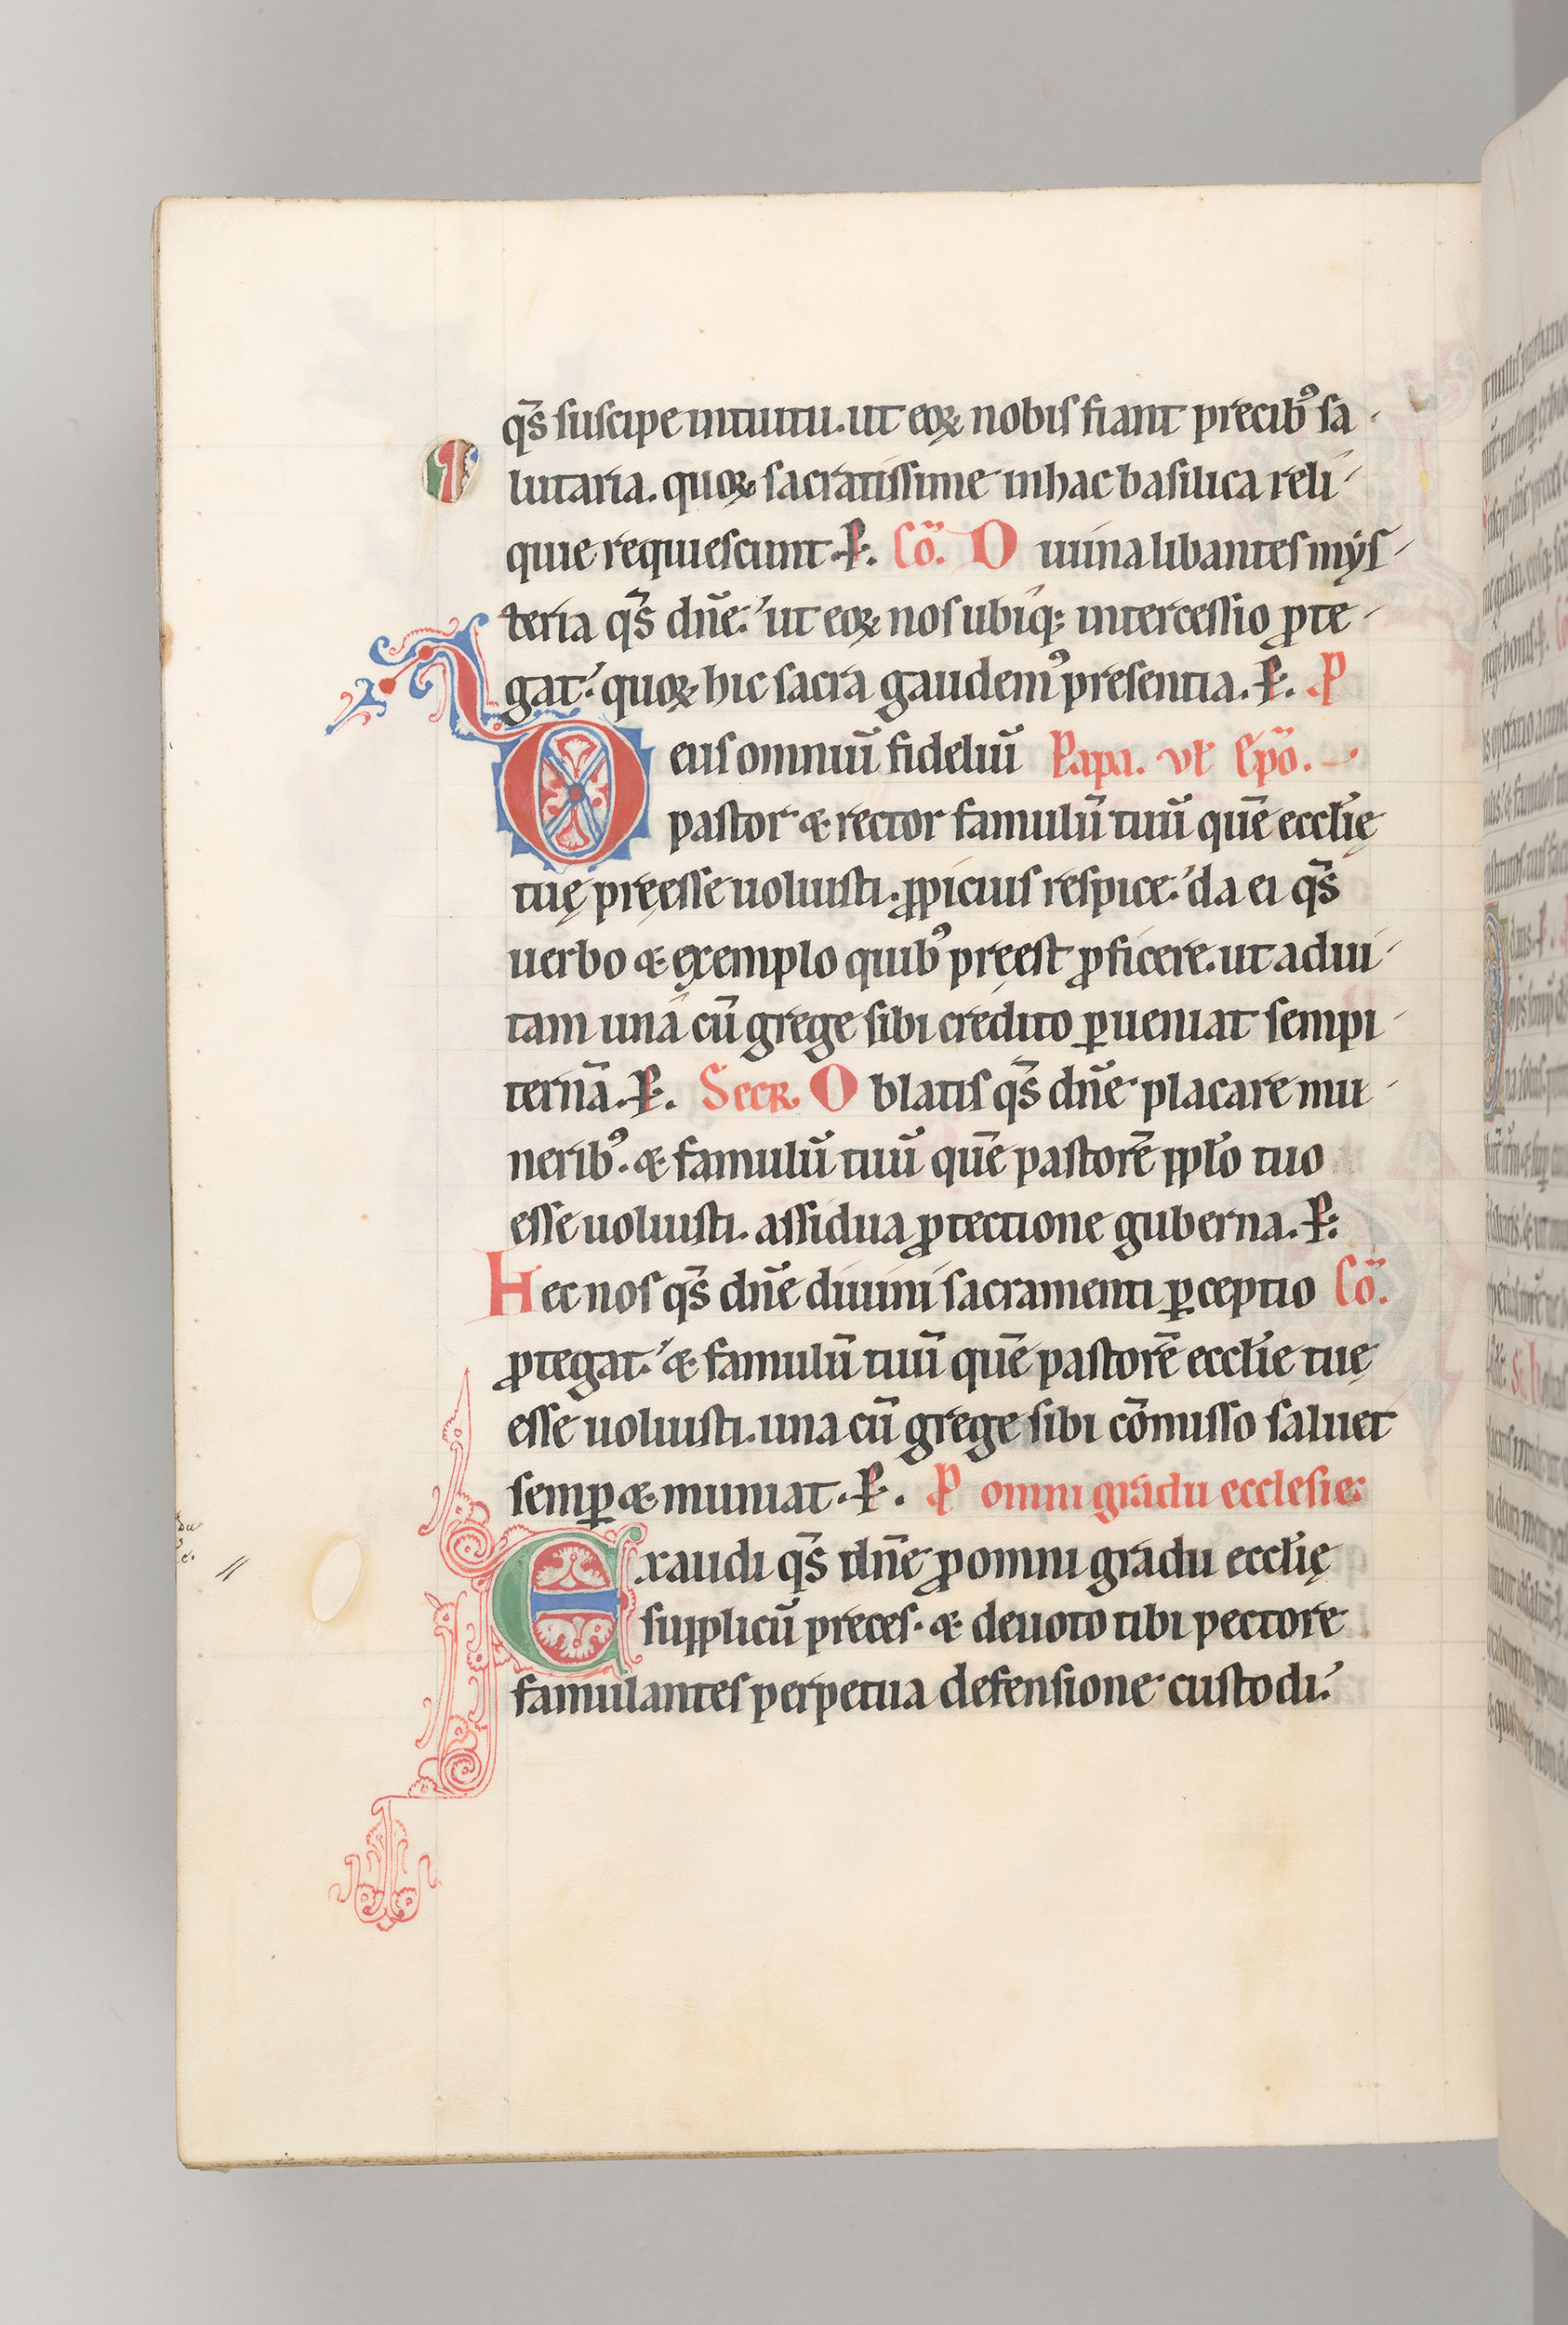 q̄s suscipe intuitu. ut eoꝝ nobis fiant precib⁹ sa
lutaria. quoꝝ sacratissime in hac basilica reli
quie requiescunt. P. Cō. D iuina libantes mẏs
teria q̄s dn̄e. ut eoꝝ nos ubiq; intercessio ꝓte
gat. quoꝝ hic sacra gaudem⁹ presentia. P. P
D eus omniū fideliū Papa. vł Ep̄o.
pastor & rector famulū tuū quē eccłię
tuę pręesse uoluisti. ꝓpicius respice. da ei q̄s
uerbo & exemplo quib⁹ pręest ꝓficere. ut ad ui
tam una cū grege sibi credito ꝑueniat sempi
ternā. P. Secr. O blatis q̄s dn̄e placare mu
nerib⁹. & famulū tuū quē pastorē pp̄lo tuo
esse uoluisti. assidua ꝓtectione guberna. P.
H ec nos q̄s dn̄e diuini sacramenti ꝑceptio Cō.
ꝓtegat. & famulū tuū quē pastorē eccłie tuę
esse uoluisti. una cū grege sibi cōmisso saluet
semꝑ & muniat. P. P omni gradu ecclesie.
E xaudi q̄s dn̄e ꝓ omni gradu eccłię
supplicū preces. & deuoto tibi pectore
famulantes perpetua defensione custodi.